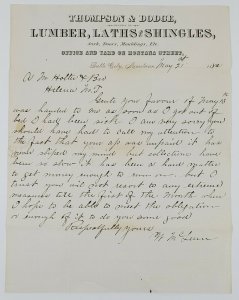 THOMPSON & DODGE,
LUMBER, LATHS & SHINGLES,
Sash, Doors, Mouldings, Etc.
OFFICE AND YARD ON MONTANA STREET,
Butte City, Montana May 21st 188
A M Holter & Bro
Helena M.T.
Gents your favour of May 18th
was handed to me as soon as I got out of
bed I had been sick I am very sorry you
should have had to call my attention to
the fact that your a/c was unpaid it has
never sliped my mind but collections have
been so slow it has been a hard matter
to get money enough to run on but I
trust you will not resort to any extreme
measures till the first of the Month when
I hope to be able to meet the obligation
or enough of it to do you some good
Respectfully yours